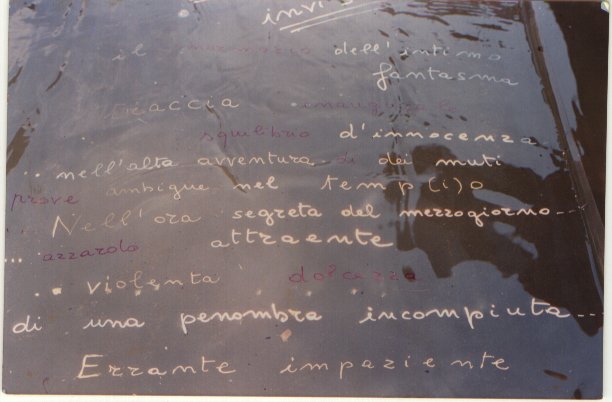 il dell'intimo
fantasma
traccia inaugurale
squilibrio d'innocenza
.. nell'alta avventura di dei muti
prove ambigue nel temp(i)o
.. Nell'ora segreta del mezzogiorno...
... azzardo attraente
.. violenta dolcezza
di una penombra incompiuta...
Errante impaziente